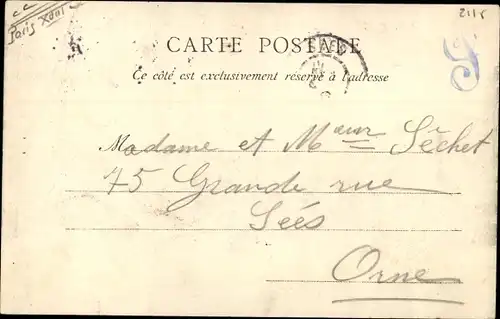 Paris XVIII
2115
CARTE POSTALE
Ce côté est exclusivement réservé à l'adresse
Madame et Mœur Séchet
75 Grande rue
Sées
Orne